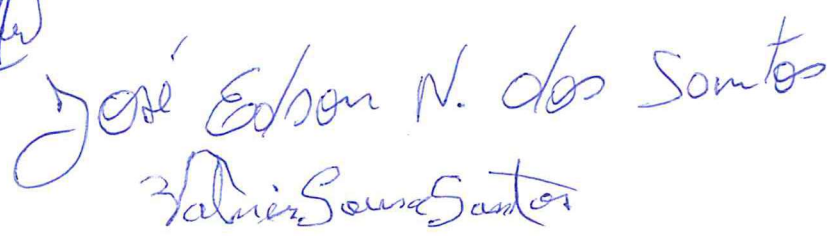 José Edson N. dos Santos
Sousa Santos